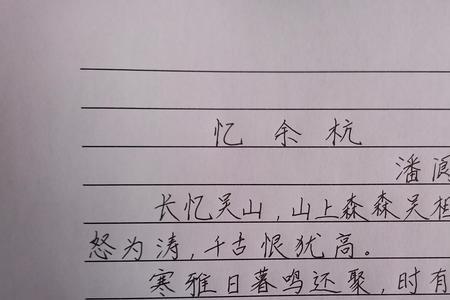 忆余杭
潘阆
长忆吴山,山上森森吴相
怒为涛,千古恨犹高。
寒雅日暮鸣还聚,时有